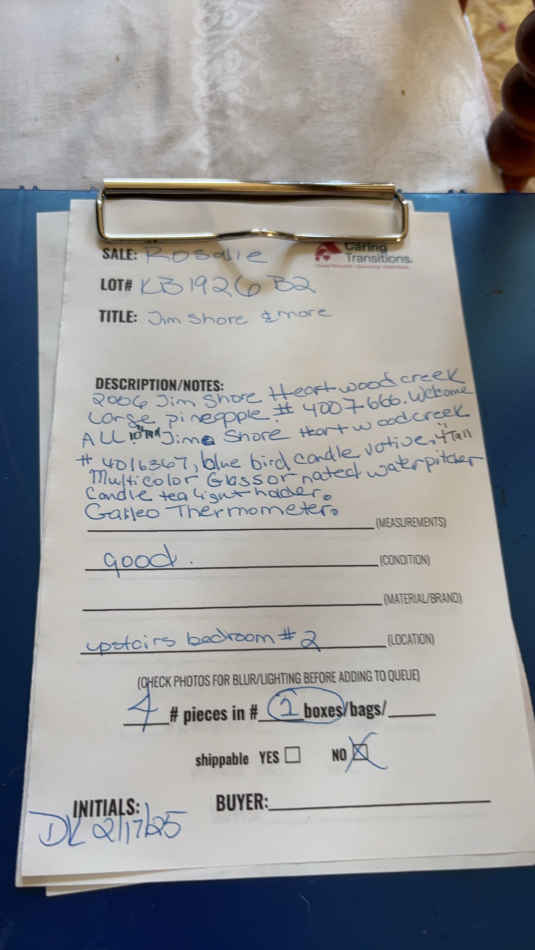 SALE: Rosalie
Caring
Transitions.
LOT# KB1926 B2
TITLE: Jim Shore & more
DESCRIPTION/NOTES:
2006 Jim Shore Heartwood creek
Large pineapple. # 4007666. Welcome
ALL 10" tall Jim Shore Hart wood creek
# 4016367, blue bird candle votive, 4" tall
Multicolor Glass ornated water pitcher
Candle tea light holder.
Galileo Thermometer.
(MEASUREMENTS)
good. (CONDITION)
(MATERIAL/BRAND)
upstairs bedroom # 2 (LOCATION)
(CHECK PHOTOS FOR BLUR/LIGHTING BEFORE ADDING TO QUEUE)
4 # pieces in # 1 boxes/bags/
shippable YES NO
INITIALS: BUYER:
DK 2/17/25